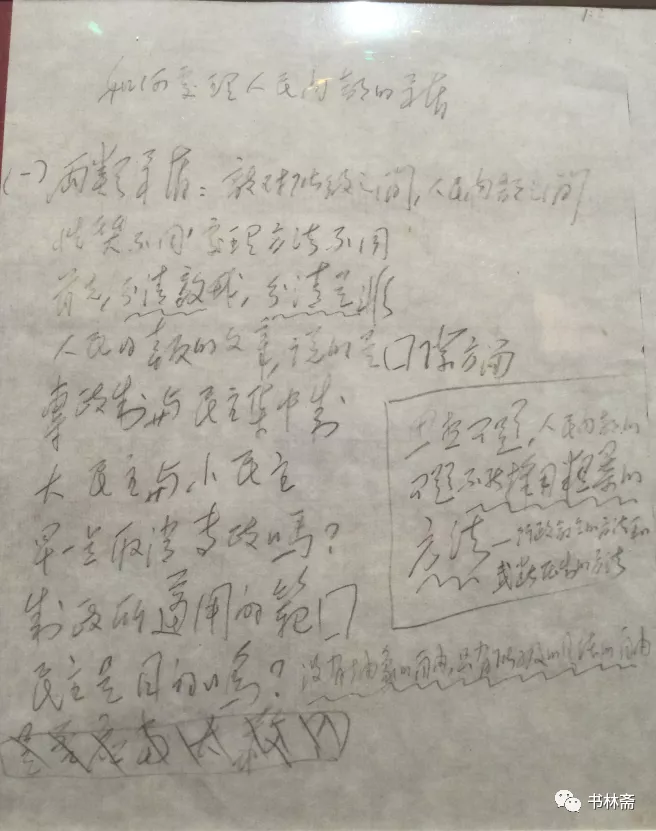 如何处理人民内部的矛盾
(一)两类矛盾：敌对阶级之间，人民内部之间
性质不同，处理方法不同
首先，分清敌我，分清是非
人民日报的文章，说的是囗际方面
专政制与民主集中制
大民主与小民主
早一点取消专政吗？
制政所适用的範囗
民主是目的吗？
没有抽象的自由，只有阶级的具体的自由
思想问题，人民内部的
问题不能採用粗暴的
方法—行政命令的方法和
或者压制的方法
书林斋